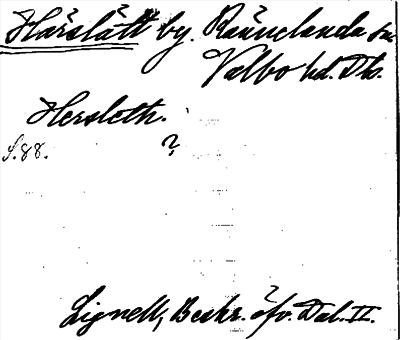 Härslätt by. Rännelanda sn
Valbo hd. Ds.
Hersleth.
S. 88. ?
Lignell, Beskr. öfv. Dal. II.